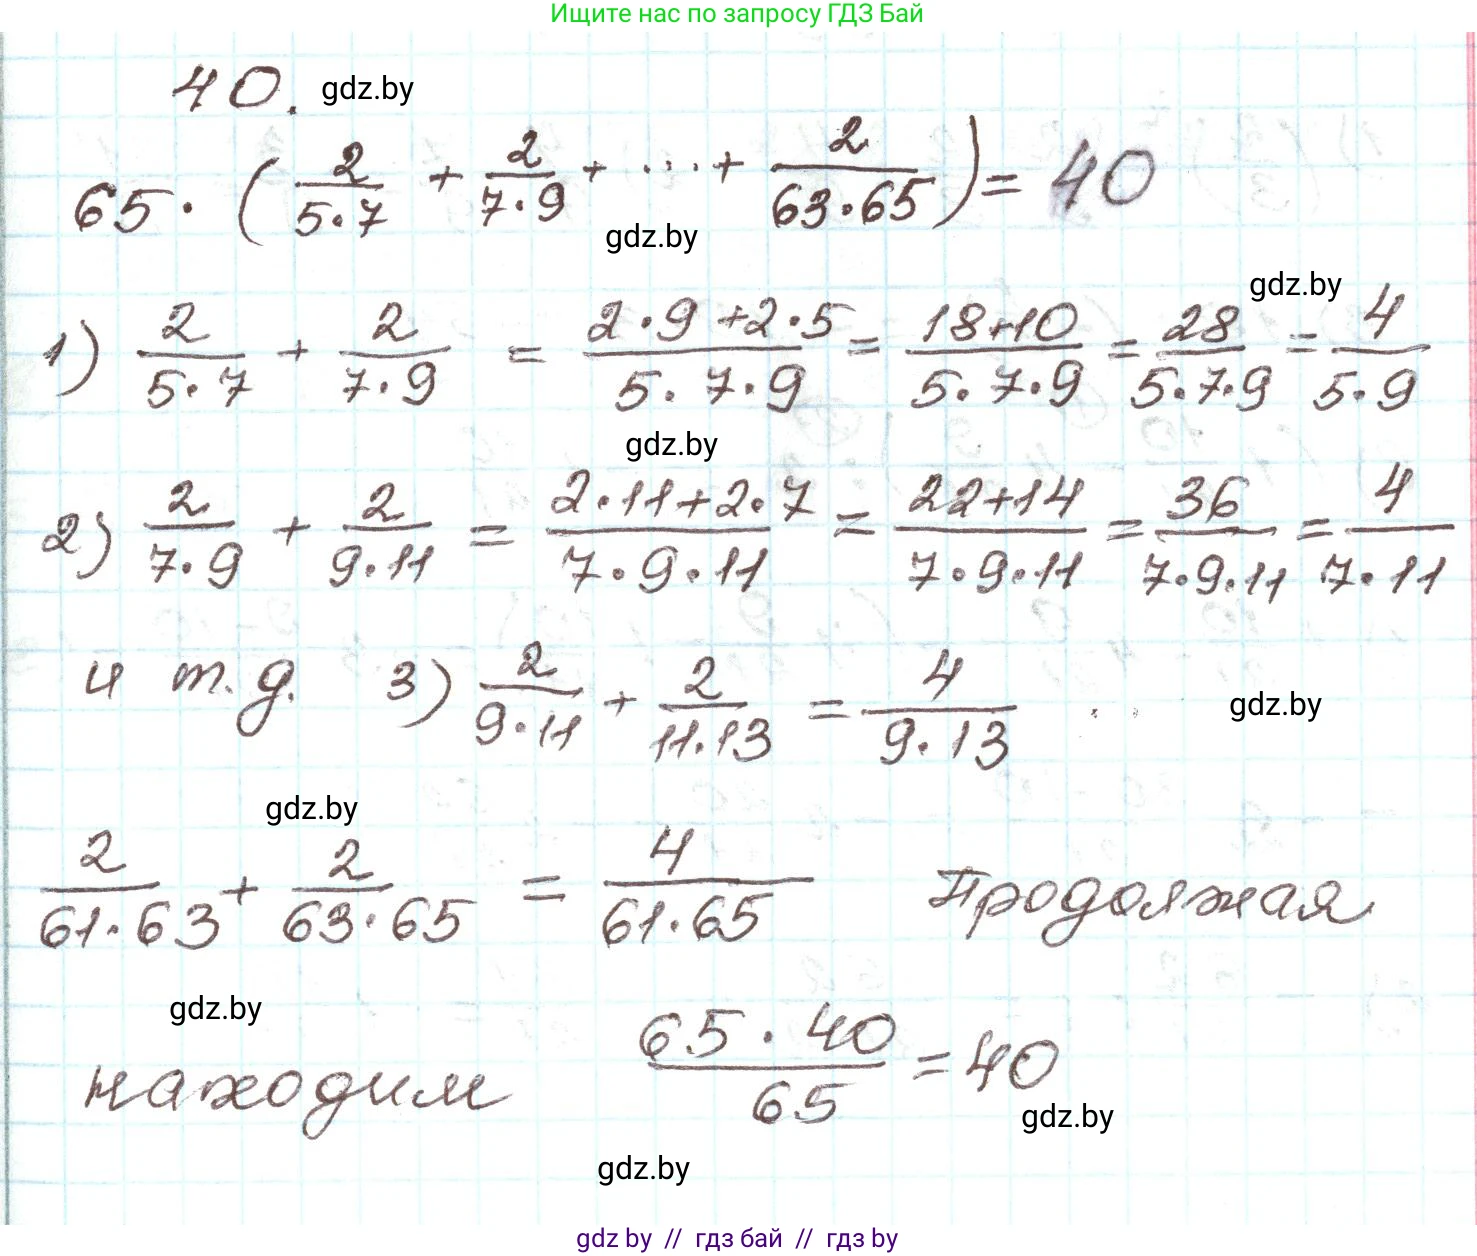 Ищите нас по запросу ГДЗ Бай
40. gdz.by
65 · (2/(5·7) + 2/(7·9) + ... + 2/(63·65)) = 40
gdz.by
gdz.by
1) 2/(5·7) + 2/(7·9) = (2·9+2·5)/(5·7·9) = (18+10)/(5·7·9) = 28/(5·7·9) = 4/(5·9)
gdz.by
2) 2/(7·9) + 2/(9·11) = (2·11+2·7)/(7·9·11) = (22+14)/(7·9·11) = 36/(7·9·11) = 4/(7·11)
и т.д. 3) 2/(9·11) + 2/(11·13) = 4/(9·13) .. gdz.by
gdz.by
2/(61·63) + 2/(63·65) = 4/(61·65) Продолжая
gdz.by
находим (65·40)/65 = 40
gdz.by
gdz.by
gdz by // гдз бай // гдз by